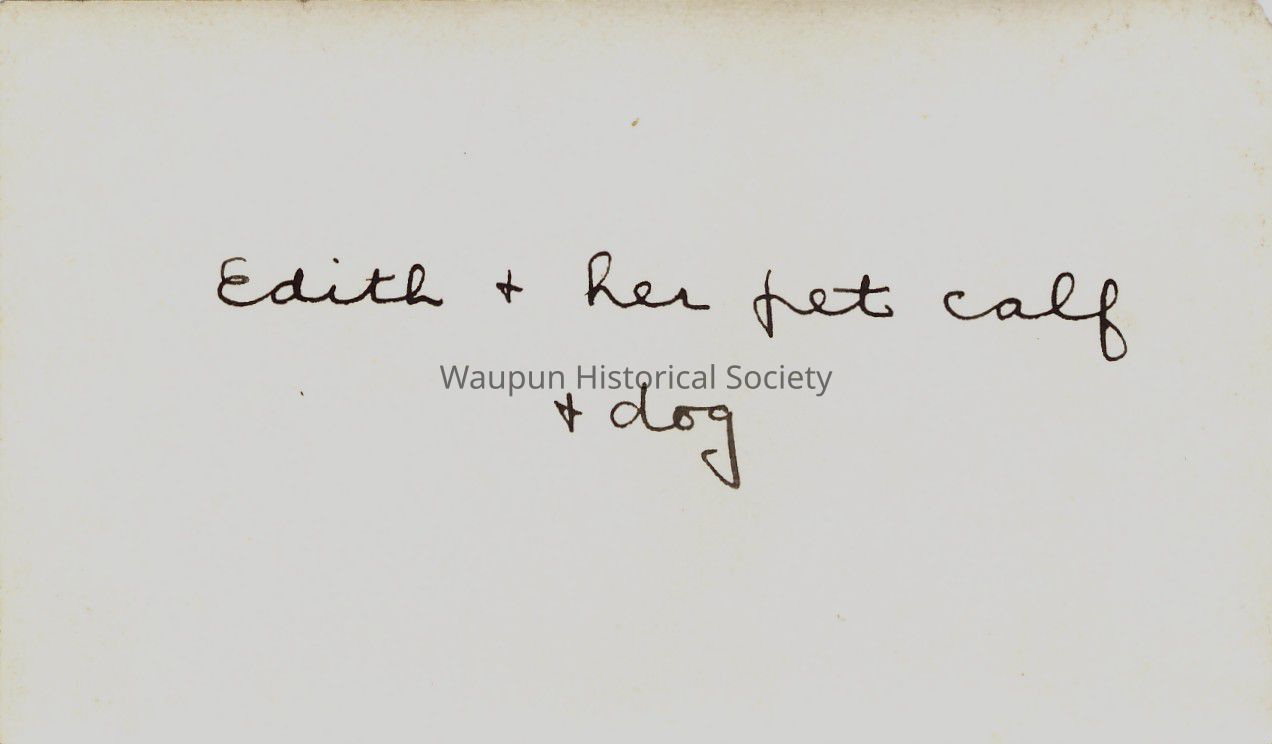 Edith + her pet calf
Waupun Historical Society
+ dog